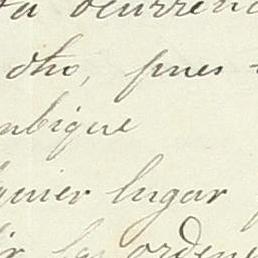 ta ocurrenc
dho, pues
mbique
quier lugar p
ir las ordene